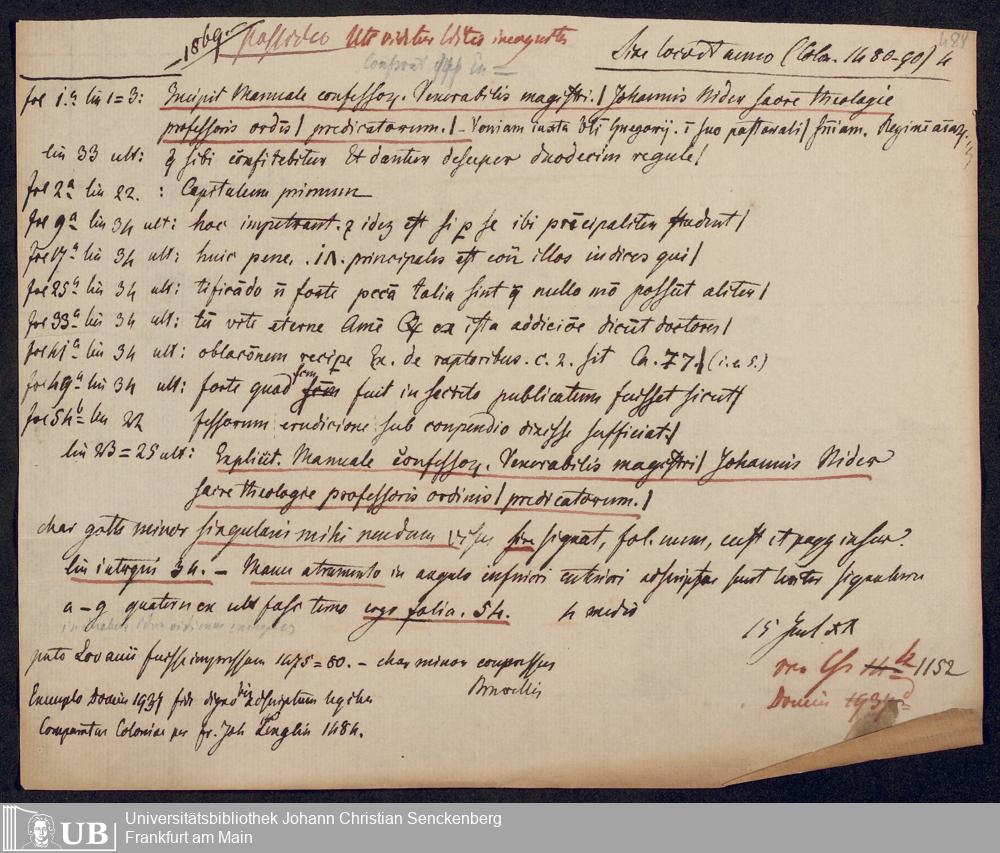 1869. Possideo Uti videtur bibliis incognitus
Sine loco et anno (Colon. 1480-90) 4
488
fol 1.ª lin 1=3: Incipit Manuale confessoꝝ. Venerabilis magistri./ Johannis Nider sacre theologie
professoris ordīs/ predicatorum./ - Voniam iuxta bti Gregorij. ī suo pastorali/ sniam. Regimē aīaꝝ.
lin 33 ult: q sibi cōfitebitur Et dantur desuper duodecim regule/
fol 2ª lin 22. : Capitulum primum
fol 9ª lin 34 ult: hoc impetrant. q idez est si p se ibi prēcipaliter student/
fol 17ª lin 34 ult: huic pene. .in. principales est con illos iudices qui/
fol 25ª lin 34 ult: tificādo n forte peccā talia sint q nullo mō possūt aliter/
fol 33ª lin 34 ult: tū vite eterne Amē Q ex ista addiciōe dicūt doctores/
fol 41ª lin 34 ult: oblacōnem recipe Ex. de raptoribus. c. 2. sit Ca. 77./ (i. e 5.)
fol 49ª lin 34 ult: forte quod scm fuit in secreto publicatum fuisset sicut/
fol 54b lin 22 fessorum erudicione sub conpendio dixisse sufficiat./
lin 23=25 ult: Explicit. Manuale cōfessoꝝ. Venerabilis magistri/ Johannis Nider
sacre theologie professoris ordinis/ predicatorum./
char goth minor singularis mihi nondum visus sine signat, fol. num, cust et pagg inscr.
lin integris 34. - Manu atramento in angulo inferiori exteriori adscriptae sunt literis signaturae
a-g quaterni ex ult fasc terno ergo folia. 54. 4 medio
15 Jul
puto Lovanii fuisse impressum 1475=80. - char minor compressus
Bruxellis
1152
Exemplo Domin 1937 fide digno adscriptum legitur
Domin 1937
Comparatus Coloniae per fr. Joh Zenglin 1484.
Universitätsbibliothek Johann Christian Senckenberg
UB Frankfurt am Main